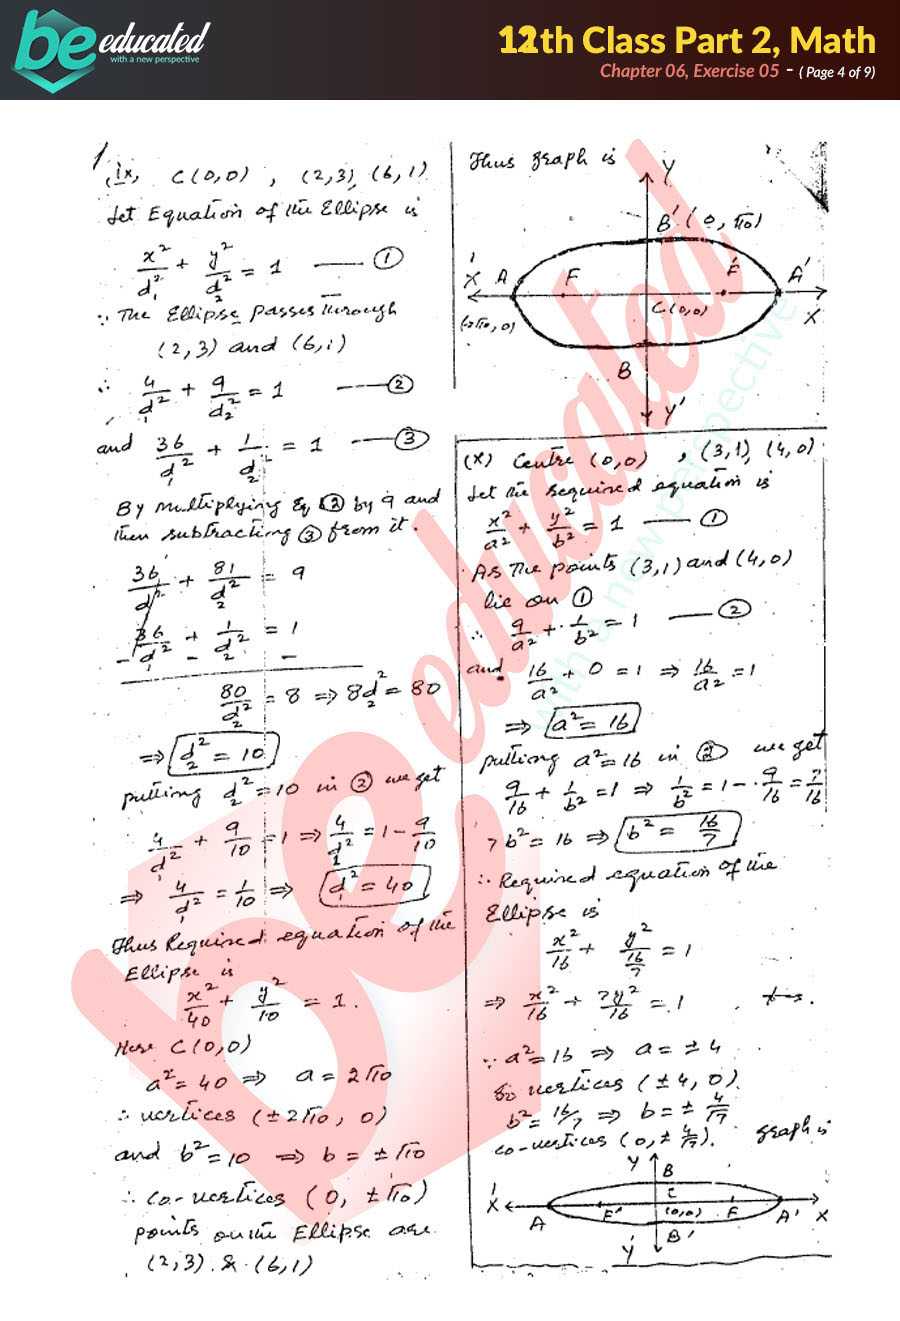 be educated
with a new perspective
12th Class Part 2, Math
Chapter 06, Exercise 05 - ( Page 4 of 9)
1
(ix) C(0,0) , (2,3), (6,1)
Let Equation of the Ellipse is
x²/d₁² + y²/d₂² = 1 —— ①
∵ The Ellipse passes through
(2,3) and (6,1)
∴ 4/d₁² + 9/d₂² = 1 —— ②
and 36/d₁² + 1/d₂² = 1 —— ③
By multiplying Eq ② by 9 and
then subtracting ③ from it.
36/d₁² + 81/d₂² = 9
- 36/d₁² + - 1/d₂² = - 1
80/d₂² = 8 ⇒ 8d₂² = 80
⇒ d₂² = 10
putting d₂² = 10 in ② we get
4/d₁² + 9/10 = 1 ⇒ 4/d₁² = 1 - 9/10
⇒ 4/d₁² = 1/10 ⇒ d₁² = 40
Thus Required equation of the
Ellipse is
x²/40 + y²/10 = 1.
Here C(0,0)
a² = 40 ⇒ a = 2√10
∴ vertices (±2√10, 0)
and b² = 10 ⇒ b = ±√10
∴ co-vertices (0, ±√10)
points on the Ellipse are
(2,3) & (6,1)
Thus graph is
Y
B'(0, √10)
X' A F F' A'
C(0,0)
(-2√10, 0) X
B
Y'
(x) Centre (0,0) , (3,1), (4,0)
Let the required equation is
x²/a² + y²/b² = 1 —— ①
As The points (3,1) and (4,0)
lie on ①
∴ 9/a² + 1/b² = 1 —— ②
and 16/a² + 0 = 1 ⇒ 16/a² = 1
⇒ a² = 16
putting a² = 16 in ② we get
9/16 + 1/b² = 1 ⇒ 1/b² = 1 - 9/16 = 7/16
7b² = 16 ⇒ b² = 16/7
∴ Required equation of the
Ellipse is
x²/16 + y²/(16/7) = 1
⇒ x²/16 + 7y²/16 = 1
∵ a² = 16 ⇒ a = ±4
So vertices (±4, 0)
b² = 16/7 ⇒ b = ± 4/√7
co-vertices (0, ± 4/√7). graph is
Y B
X' C
A F' (0,0) F A' X
B'
Y'
be educated
with a new perspective